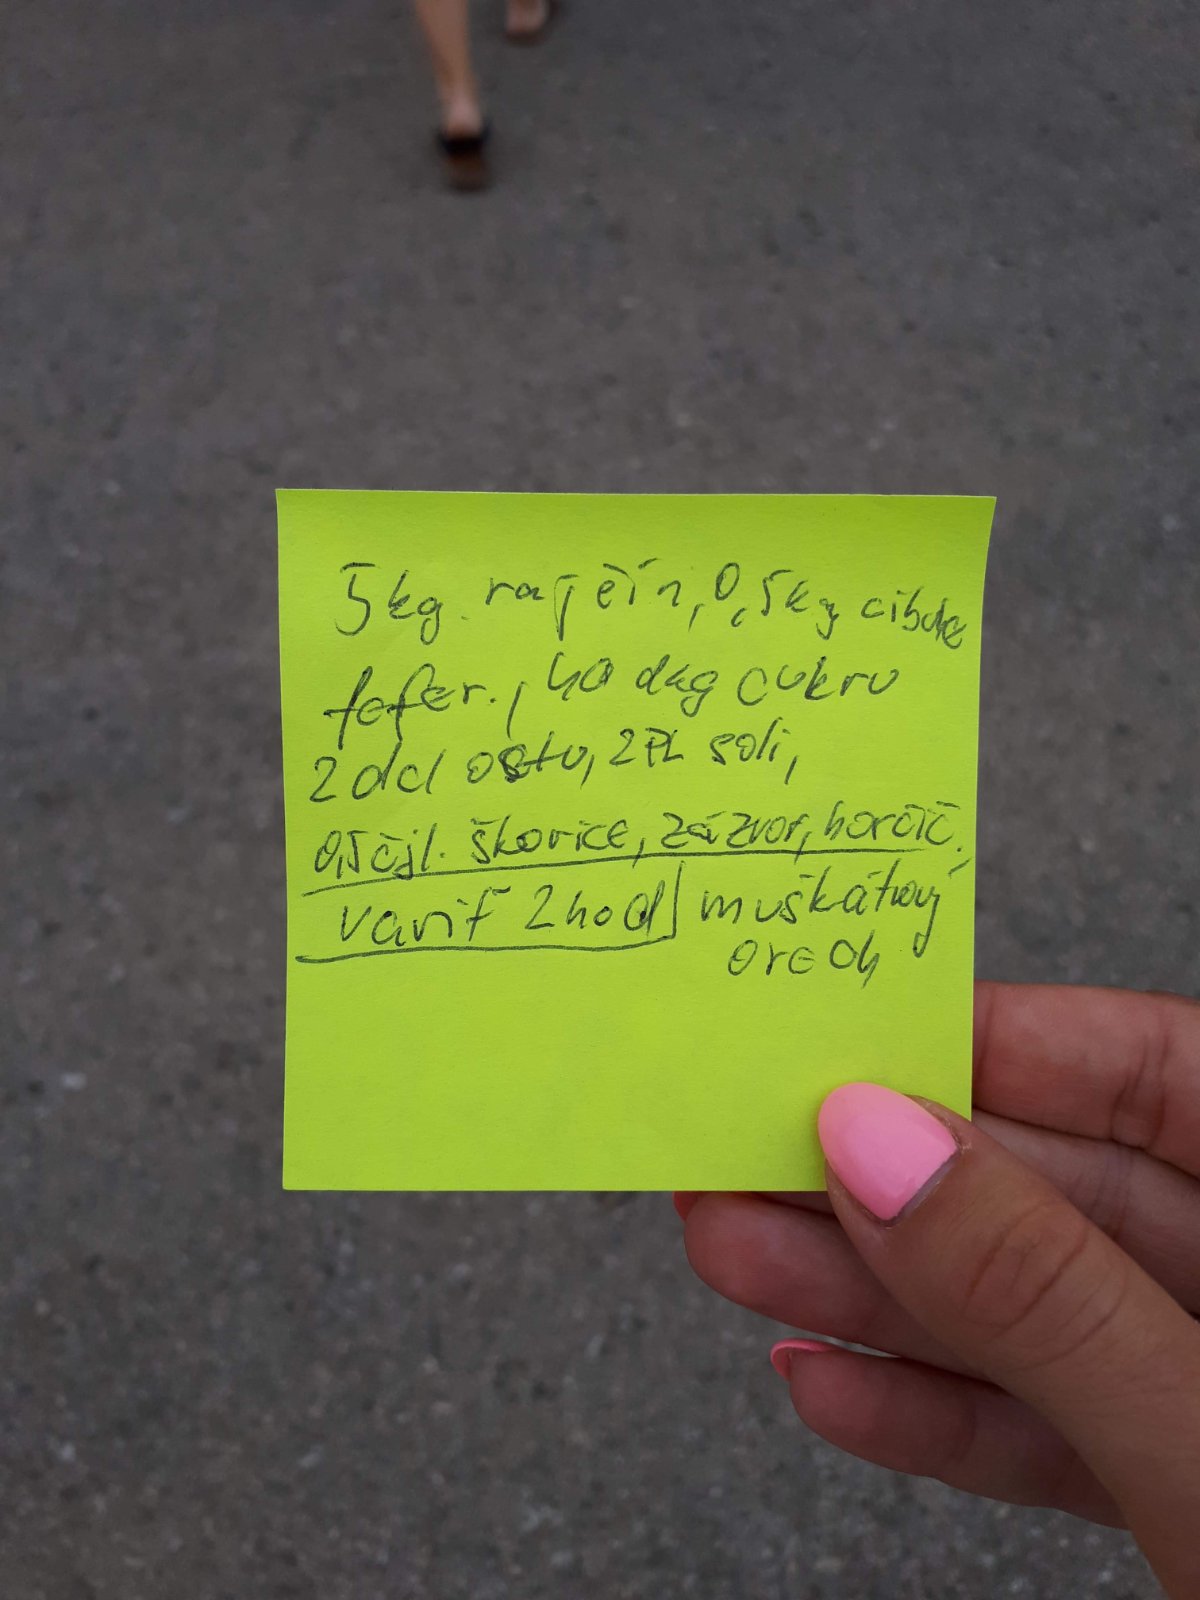 5kg. rajčín, 0,5kg cibule
fefer., 40 dkg cukru
2dcl octu, 2PL soli,
0,5 čjl. škorice, zázvor, horčič.,
variť 2hod muškátový
orech